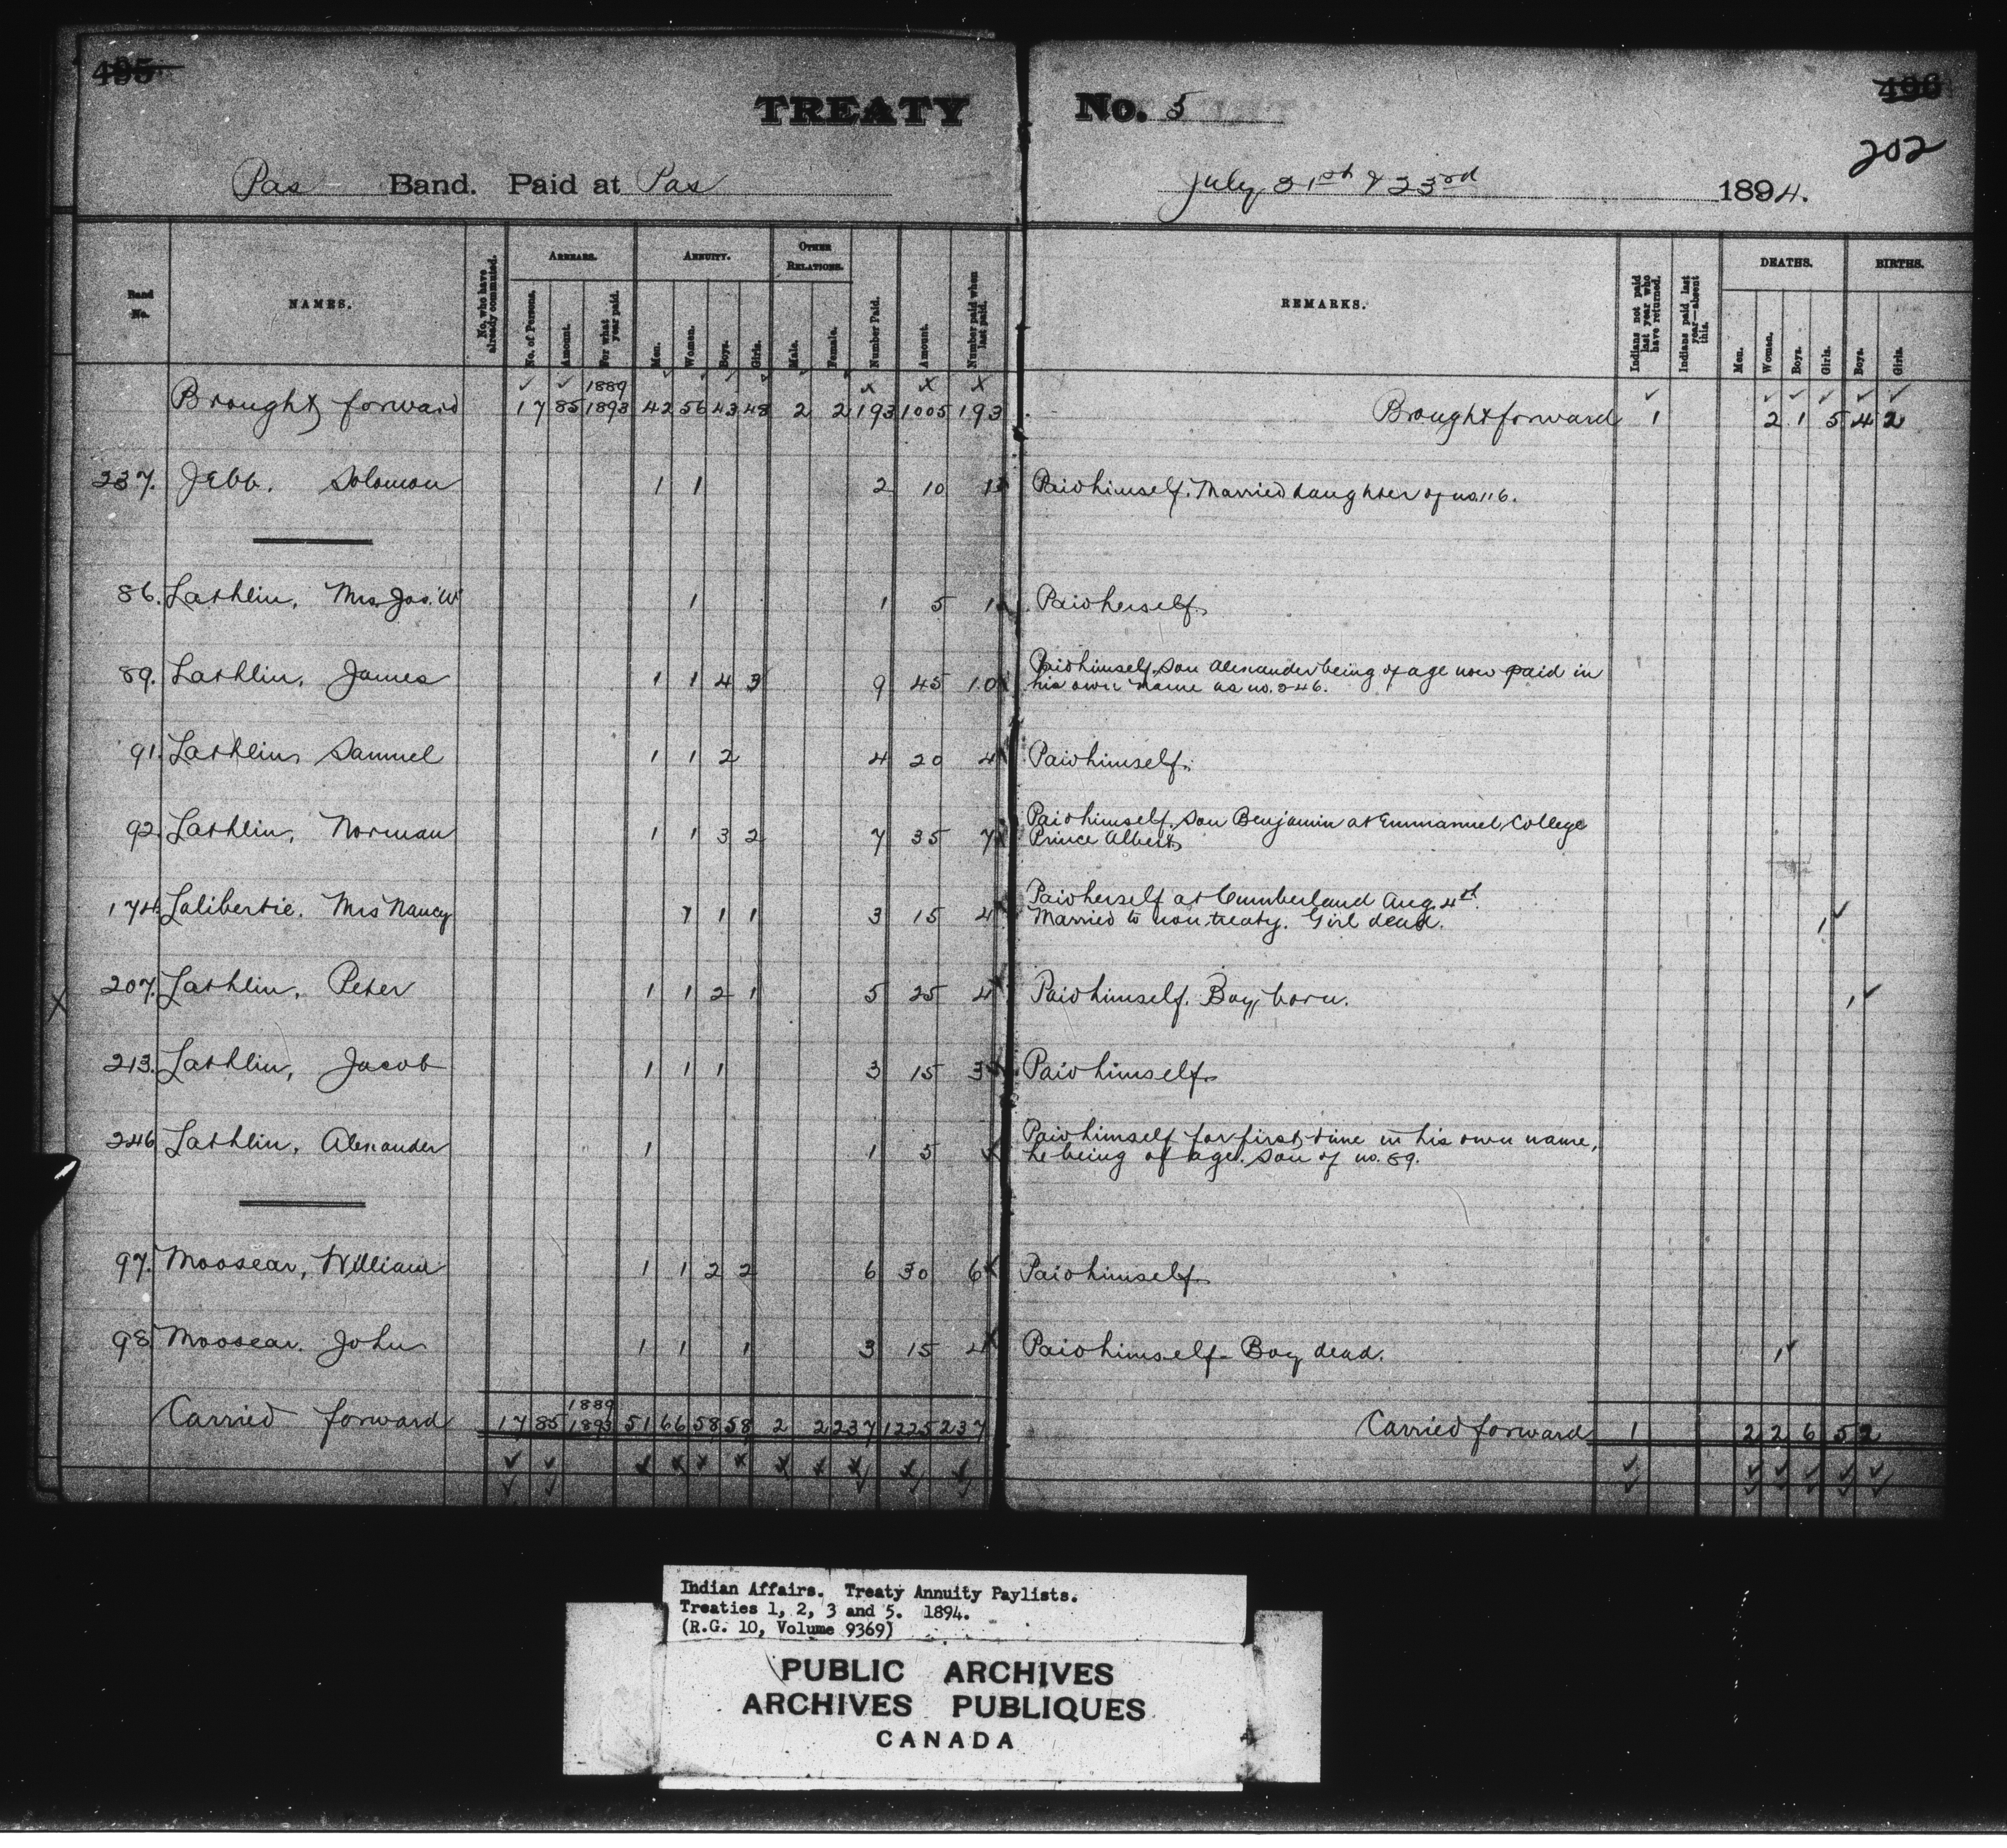 495 496
TREATY No. 5
202
Pas Band. Paid at Pas July 21st & 23rd 1894.
Band No. NAMES. No. who have already commuted. ARREARS. ANNUITY. OTHER RELATIONS. Number Paid. Amount. Number paid when last paid. REMARKS. Indians not paid last year who have returned. Indians paid last year—absent this. DEATHS. BIRTHS.
No. of Persons. Amount. For what year paid. Men. Women. Boys. Girls. Male. Female. Men. Women. Boys. Girls. Boys. Girls.
1889
Brought forward 17 85 1893 42 56 43 48 2 2 193 1005 193 Brought forward 1 2 1 5 4 2
237. Jebb, Solomon 1 1 2 10 1 Paid himself. Married daughter of no. 116.
86. Lathlin, Mrs Jas. W 1 1 5 1 Paid herself.
89. Lathlin, James 1 1 4 3 9 45 10 Paid himself, son Alexander being of age now paid in
his own name as no. 246.
91. Lathlin, Samuel 1 1 2 4 20 4 Paid himself.
92. Lathlin, Norman 1 1 3 2 7 35 7 Paid himself, son Benjamin at Emmanuel College
Prince Albert.
174. Lalibertie, Mrs Nancy 1 1 1 3 15 4 Paid herself at Cumberland Aug. 4th.
Married to non treaty. Girl dead. 1
207. Lathlin, Peter 1 1 2 1 5 25 4 Paid himself. Boy born. 1
213. Lathlin, Jacob 1 1 1 3 15 3 Paid himself.
246 Lathlin, Alexander 1 1 5 Paid himself for first time in his own name,
he being of age. Son of no. 89.
97. Moosear, William 1 1 2 2 6 30 6 Paid himself.
98 Moosear, John 1 1 1 3 15 4 Paid himself. Boy dead. 1
1889
Carried forward 17 85 1893 51 66 58 58 2 2 237 1225 237 Carried forward 1 2 2 6 5 2
Indian Affairs. Treaty Annuity Paylists.
Treaties 1, 2, 3 and 5. 1894.
(R.G. 10, Volume 9369)
PUBLIC ARCHIVES
ARCHIVES PUBLIQUES
CANADA